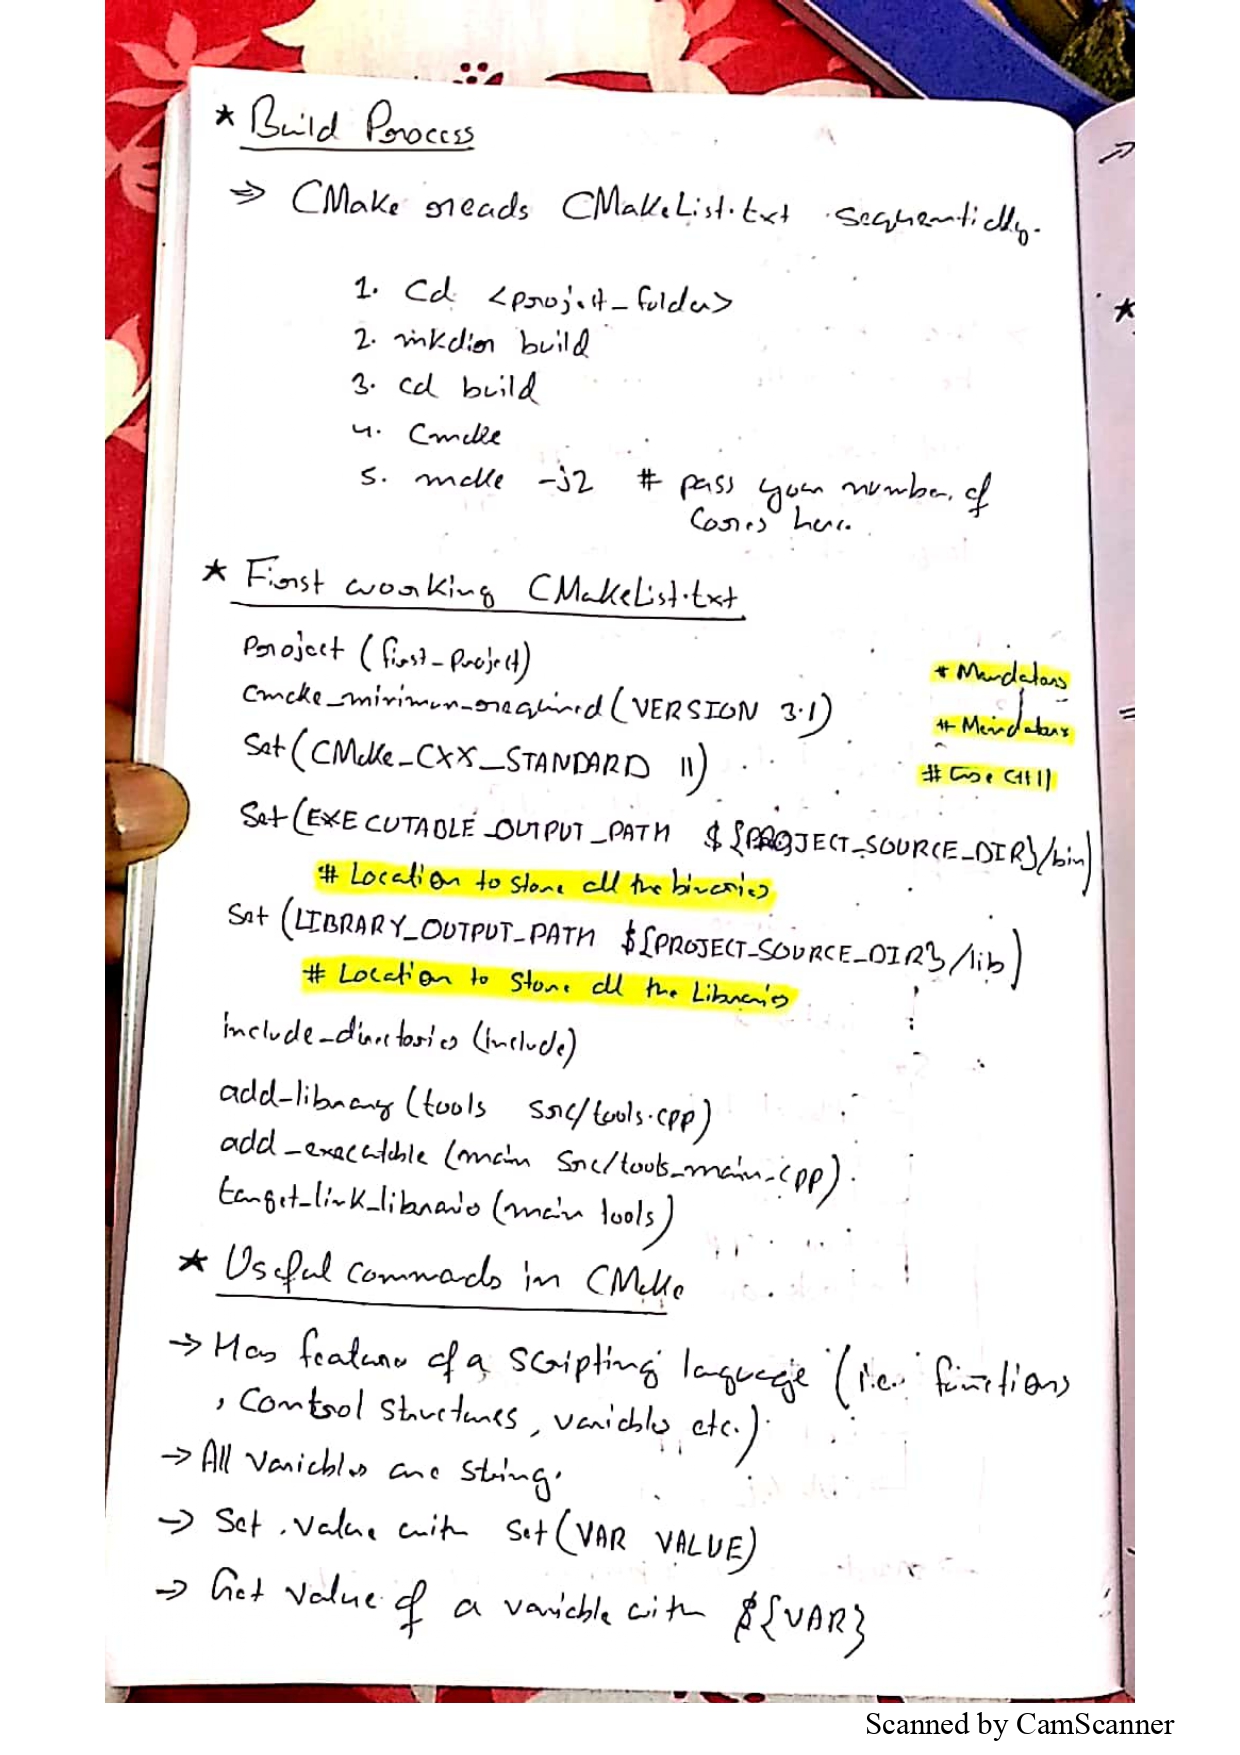 ★ Build Process
⇒ CMake reads CMakeList.txt sequentially.
1. cd <project_folder>
2. mkdir build
3. cd build
4. Cmake
5. make -j2 # pass your number of
cores here.
★ First working CMakeList.txt
Project (first_project) # Mandatory
cmake_minimum_required (VERSION 3.1) # Mandatory
Set (CMake_CXX_STANDARD 11) # Use C++11
Set (EXECUTABLE_OUTPUT_PATH ${PROJECT_SOURCE_DIR}/bin)
# Location to store all the binaries
Set (LIBRARY_OUTPUT_PATH ${PROJECT_SOURCE_DIR}/lib)
# Location to store all the Libraries
include_directories (include)
add_library (tools src/tools.cpp)
add_executable (main src/tools_main.cpp)
target_link_libraries (main tools)
★ Useful commads in CMake
→ Has feature of a scripting language (i.e. functions
, control structures, variables etc.)
→ All variables are string.
→ Set value with set (VAR VALUE)
→ Get value of a variable with ${VAR}
Scanned by CamScanner